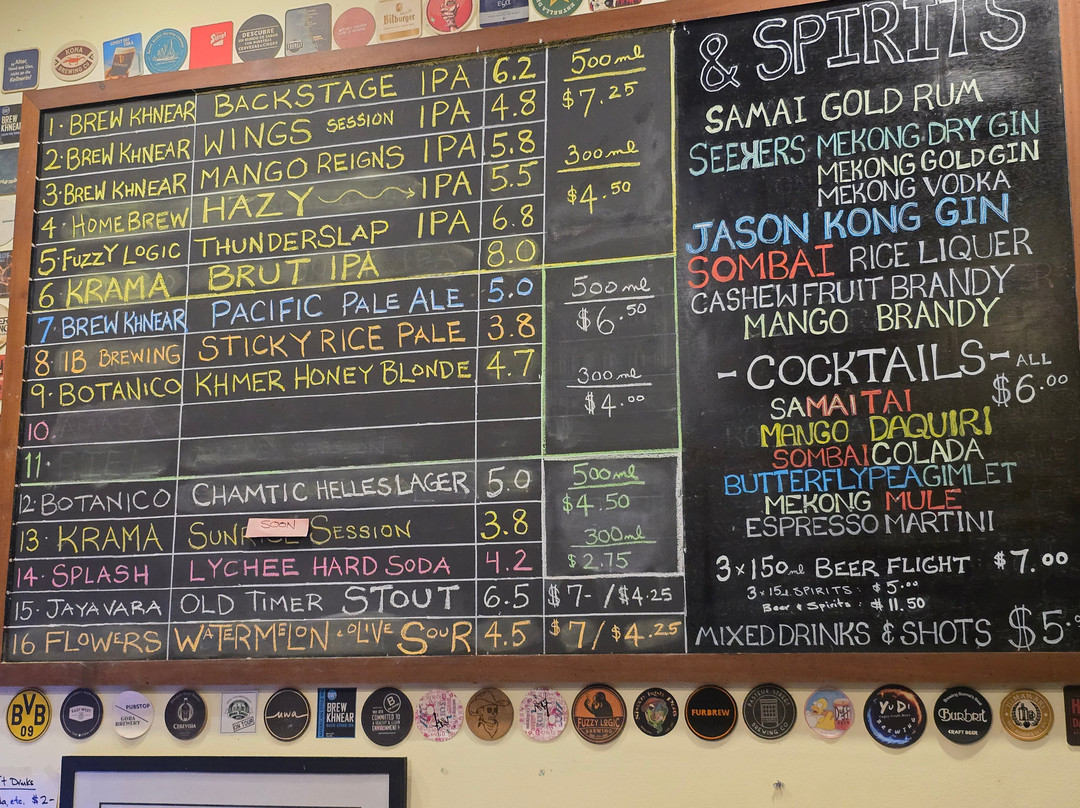 KONA
BREWING CO
DESCUBRE
Bitburger
BREW
KHNEAR
1. BREW KHNEAR BACKSTAGE IPA 6.2
2. BREW KHNEAR WINGS SESSION IPA 4.8
3. BREW KHNEAR MANGO REIGNS IPA 5.8
4. HOMEBREW HAZY IPA 5.5
5. FUZZY LOGIC THUNDERSLAP IPA 6.8
6. KRAMA BRUT IPA 8.0
500ml
$7.25
300ml
$4.50
7. BREW KHNEAR PACIFIC PALE ALE 5.0
8. IB BREWING STICKY RICE PALE 3.8
9. BOTANICO KHMER HONEY BLONDE 4.7
10.
11.
500ml
$6.50
300ml
$4.00
12. BOTANICO CHAMTIC HELLES LAGER 5.0
13. KRAMA SUNRISE SESSION 3.8
SOON
14. SPLASH LYCHEE HARD SODA 4.2
500ml
$4.50
300ml
$2.75
15. JAYAVARA OLD TIMER STOUT 6.5 $7- /$4.25
16 FLOWERS WATERMELON & OLIVE SOUR 4.5 $7/$4.25
& SPIRITS
SAMAI GOLD RUM
SEEKERS MEKONG DRY GIN
MEKONG GOLD GIN
MEKONG VODKA
JASON KONG GIN
SOMBAI RICE LIQUER
CASHEWFRUIT BRANDY
MANGO BRANDY
-COCKTAILS- ALL
$6.00
SAMAI TAI
MANGO DAQUIRI
SOMBAI COLADA
BUTTERFLYPEA GIMLET
MEKONG MULE
ESPRESSO MARTINI
3x150ml BEER FLIGHT $7.00
3x15ml SPIRITS: $5.00
Beer & Spirits: $11.50
MIXED DRINKS & SHOTS $5.
BVB
09
PUBSTOP
GORA BREWERY
CEREVISIA
uwa
BREW
KHNEAR
FUZZY LOGIC
FURBREW
YuDi
Burbrit
CRAFT BEER
Drinks
etc. $2-